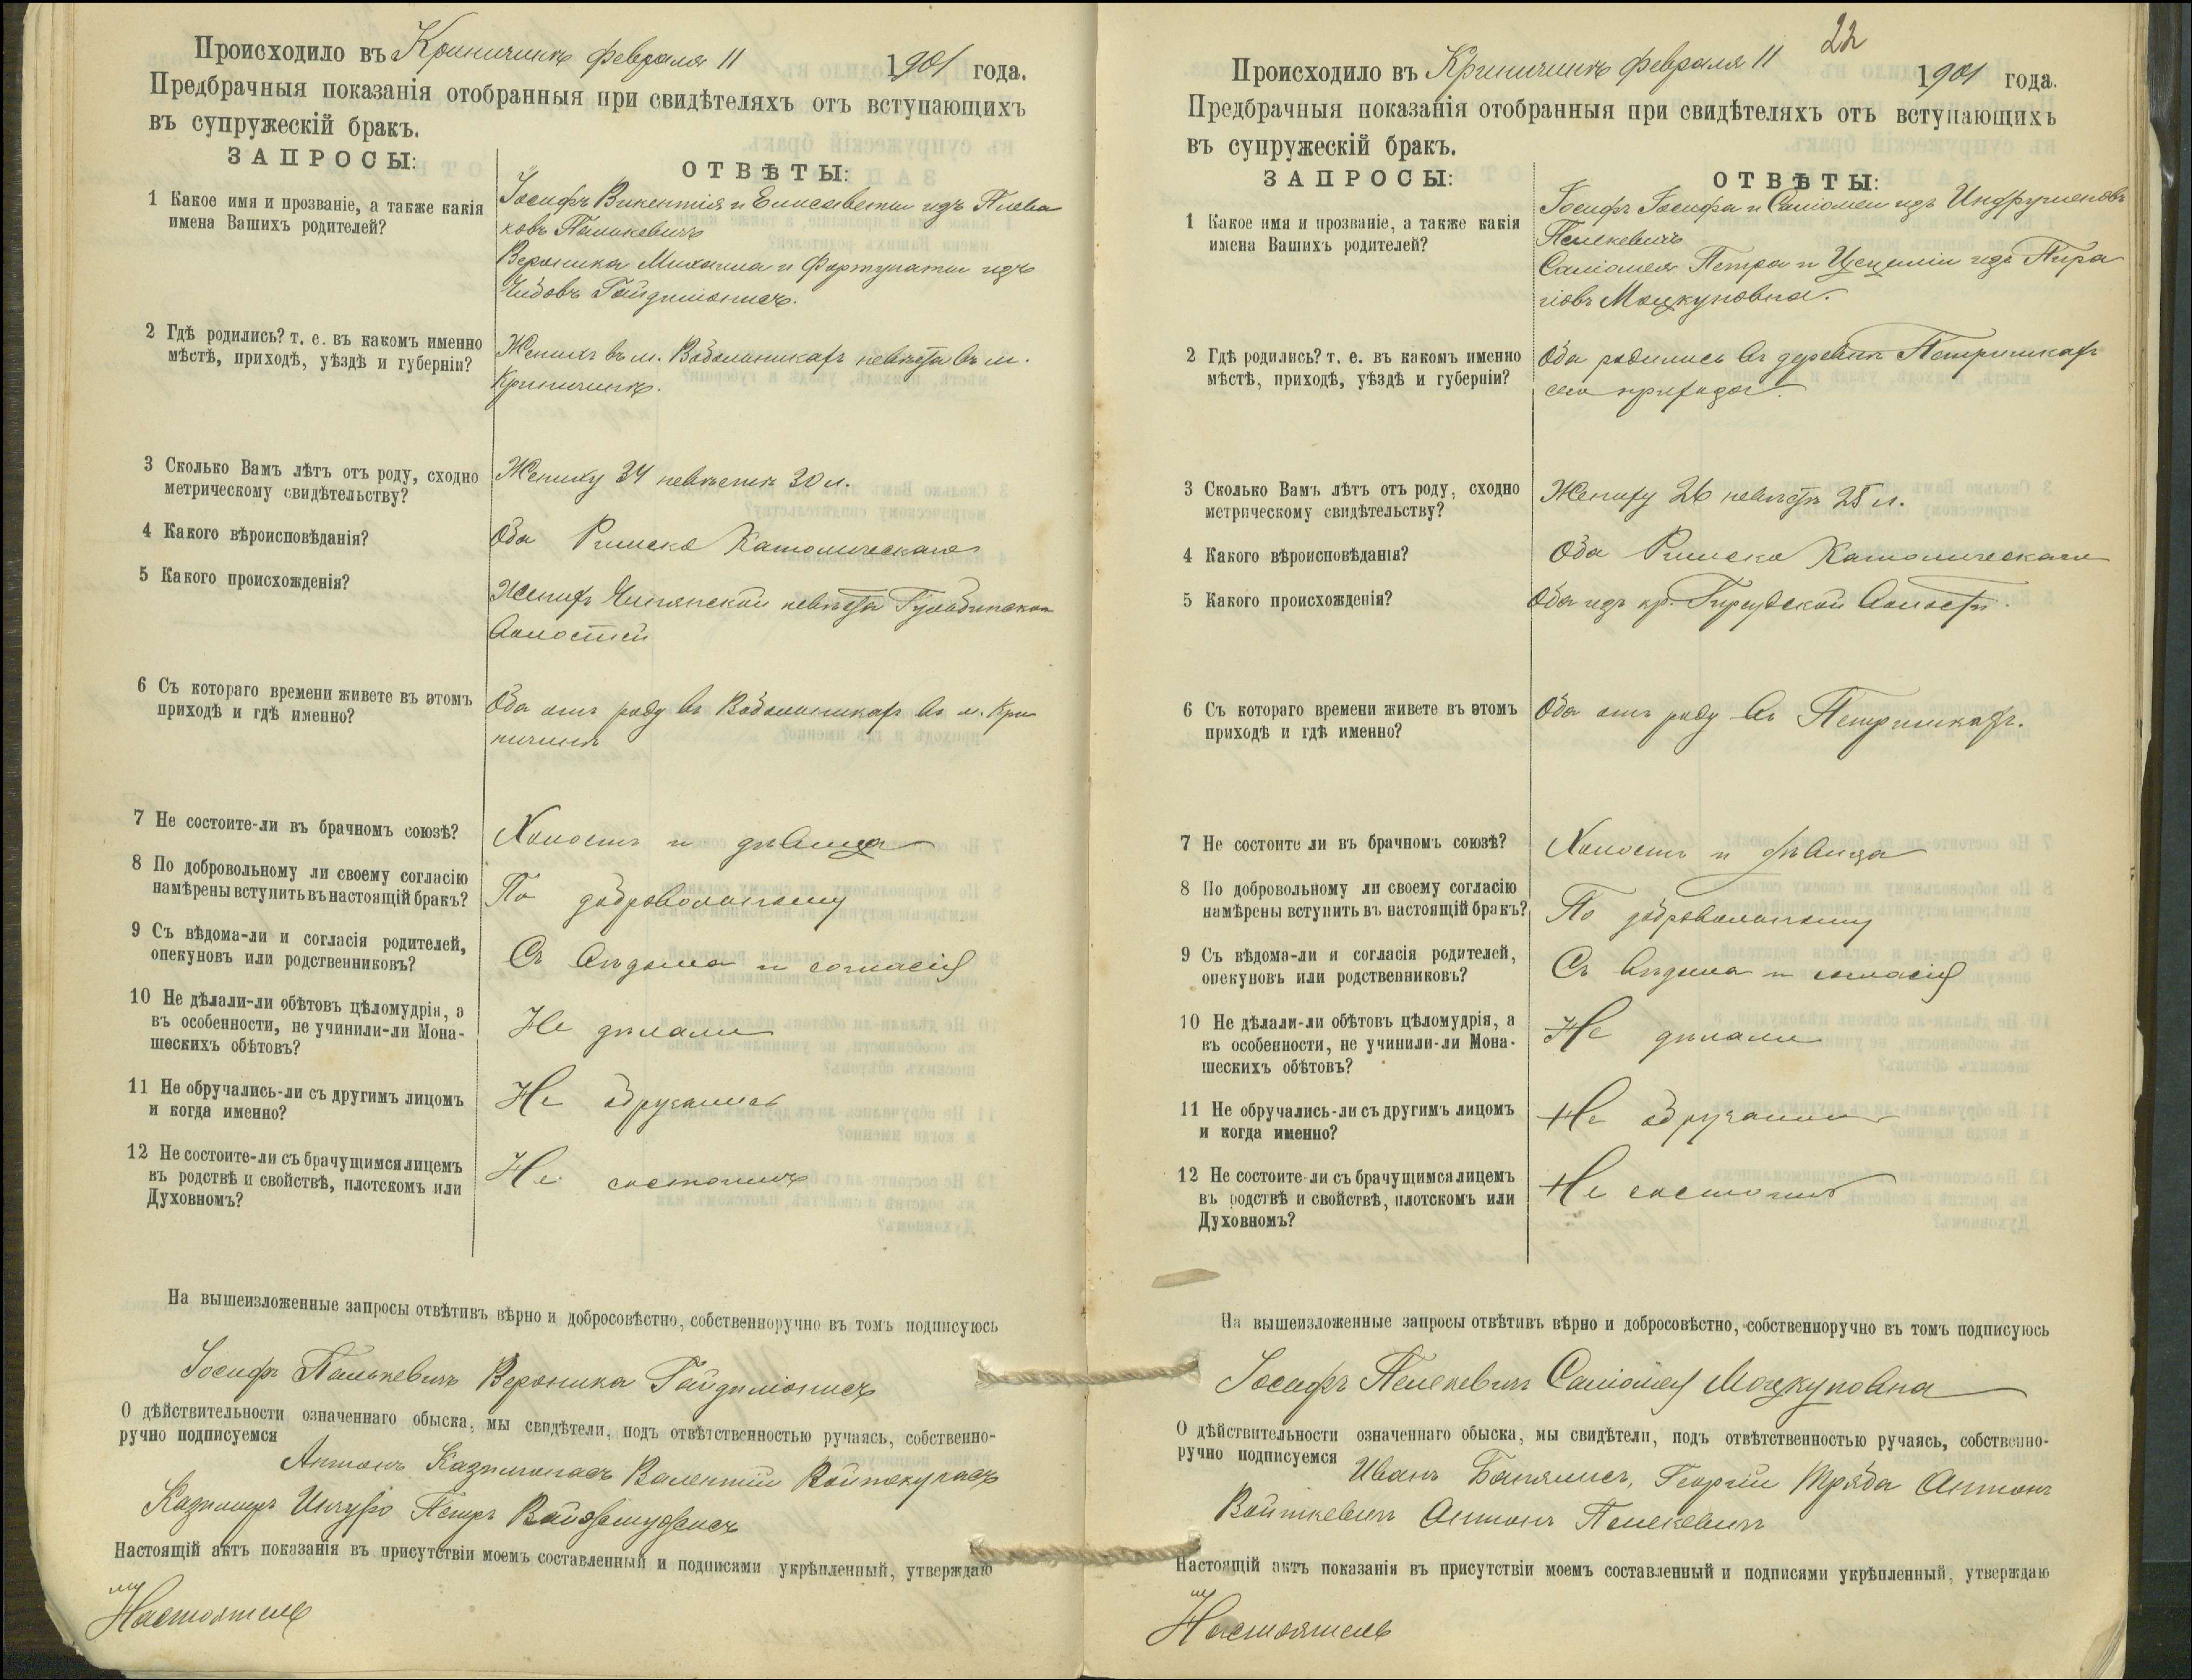 Происходило въ Криничинѣ февраля 11 1901 года.
Предбрачныя показанія отобранныя при свидѣтеляхъ отъ вступающихъ
въ супружескій бракъ.
ЗАПРОСЫ:
ОТВѢТЫ:
1 Какое имя и прозваніе, а также какія
имена Вашихъ родителей?
Іосифъ Викентія и Елисаветы изъ Плева
ковъ Палькевичъ
Вероника Михаила и Фортунаты изъ
Гайдимонисъ.
2 Гдѣ родились? т. е. въ какомъ именно
мѣстѣ, приходѣ, уѣздѣ и губерніи?
Женихъ въ м. Вабольникахъ невѣста въ м.
Криничинѣ.
3 Сколько Вамъ лѣтъ отъ роду, сходно
метрическому свидѣтельству?
Жениху 34 невѣстѣ 30 л.
4 Какого вѣроисповѣданія?
Оба Римско Католическаго
5 Какого происхожденія?
Женихъ невѣста
волостей
6 Съ котораго времени живете въ этомъ
приходѣ и гдѣ именно?
Оба отъ роду въ Вабольникахъ въ м. Кри
ничинѣ
7 Не состоите-ли въ брачномъ союзѣ?
Холостъ и дѣвица
8 По добровольному ли своему согласію
намѣрены вступить въ настоящій бракъ?
По добровольному
9 Съ вѣдома-ли и согласія родителей,
опекуновъ или родственниковъ?
Съ вѣдома и согласія
10 Не дѣлали-ли обѣтовъ цѣломудрія, а
въ особенности, не учинили-ли Мона-
шескихъ обѣтовъ?
Не дѣлали
11 Не обручались-ли съ другимъ лицомъ
и когда именно?
Не обручались
12 Не состоите-ли съ брачущимся лицемъ
въ родствѣ и свойствѣ, плотскомъ или
Духовномъ?
Не состоимъ
На вышеизложенные запросы отвѣтивъ вѣрно и добросовѣстно, собственноручно въ томъ подписуюсь
Іосифъ Палькевичъ Вероника Гайдимонисъ
О дѣйствительности означеннаго обыска, мы свидѣтели, подъ отвѣтственностью ручаясь, собственно-
ручно подписуемся
Антонъ Казимонасъ Валентій Войтекунасъ
Казимиръ Петръ
Настоящій актъ показанія въ присутствіи моемъ составленный и подписями укрѣпленный, утверждаю
Настоятель
22
Происходило въ Криничинѣ февраля 11 1901 года.
Предбрачныя показанія отобранныя при свидѣтеляхъ отъ вступающихъ
въ супружескій бракъ.
ЗАПРОСЫ:
ОТВѢТЫ:
1 Какое имя и прозваніе, а также какія
имена Вашихъ родителей?
Іосифъ Іосифа и Саломеи изъ Индрушеновъ
Пелекевичъ
Саломея Петра и Цециліи изъ Пира
гіовъ Мацкуновна.
2 Гдѣ родились? т. е. въ какомъ именно
мѣстѣ, приходѣ, уѣздѣ и губерніи?
Оба родились въ деревнѣ Петришкахъ
сего прихода.
3 Сколько Вамъ лѣтъ отъ роду, сходно
метрическому свидѣтельству?
Жениху 26 невѣстѣ 25 л.
4 Какого вѣроисповѣданія?
Оба Римско Католическаго
5 Какого происхожденія?
Оба изъ кр. волости.
6 Съ котораго времени живете въ этомъ
приходѣ и гдѣ именно?
Оба отъ роду въ Петришкахъ.
7 Не состоите ли въ брачномъ союзѣ?
Холостъ и дѣвица
8 По добровольному ли своему согласію
намѣрены вступить въ настоящій бракъ?
По добровольному
9 Съ вѣдома-ли и согласія родителей,
опекуновъ или родственниковъ?
Съ вѣдома и согласія
10 Не дѣлали-ли обѣтовъ цѣломудрія, а
въ особенности, не учинили-ли Мона-
шескихъ обѣтовъ?
Не дѣлали
11 Не обручались-ли съ другимъ лицомъ
и когда именно?
Не обручались
12 Не состоите-ли съ брачущимся лицемъ
въ родствѣ и свойствѣ, плотскомъ или
Духовномъ?
Не состоимъ
На вышеизложенные запросы отвѣтивъ вѣрно и добросовѣстно, собственноручно въ томъ подписуюсь
Іосифъ Пелекевичъ Саломея Мацкуновна
О дѣйствительности означеннаго обыска, мы свидѣтели, подъ отвѣтственностью ручаясь, собственно-
ручно подписуемся
Иванъ Банялисъ, Георгій Тряба Антонъ
Войткевичъ Антонъ Пелекевичъ
Настоящій актъ показанія въ присутствіи моемъ составленный и подписями укрѣпленный, утверждаю
Настоятель